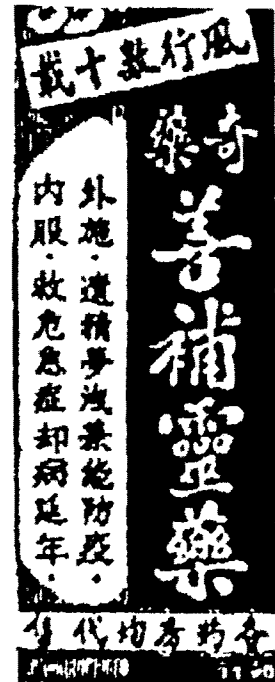 風行數十載
奇藥
善補靈藥
外施·遺精夢洩兼能防疫·
內服·救危急症却病延年·
各药房均代售